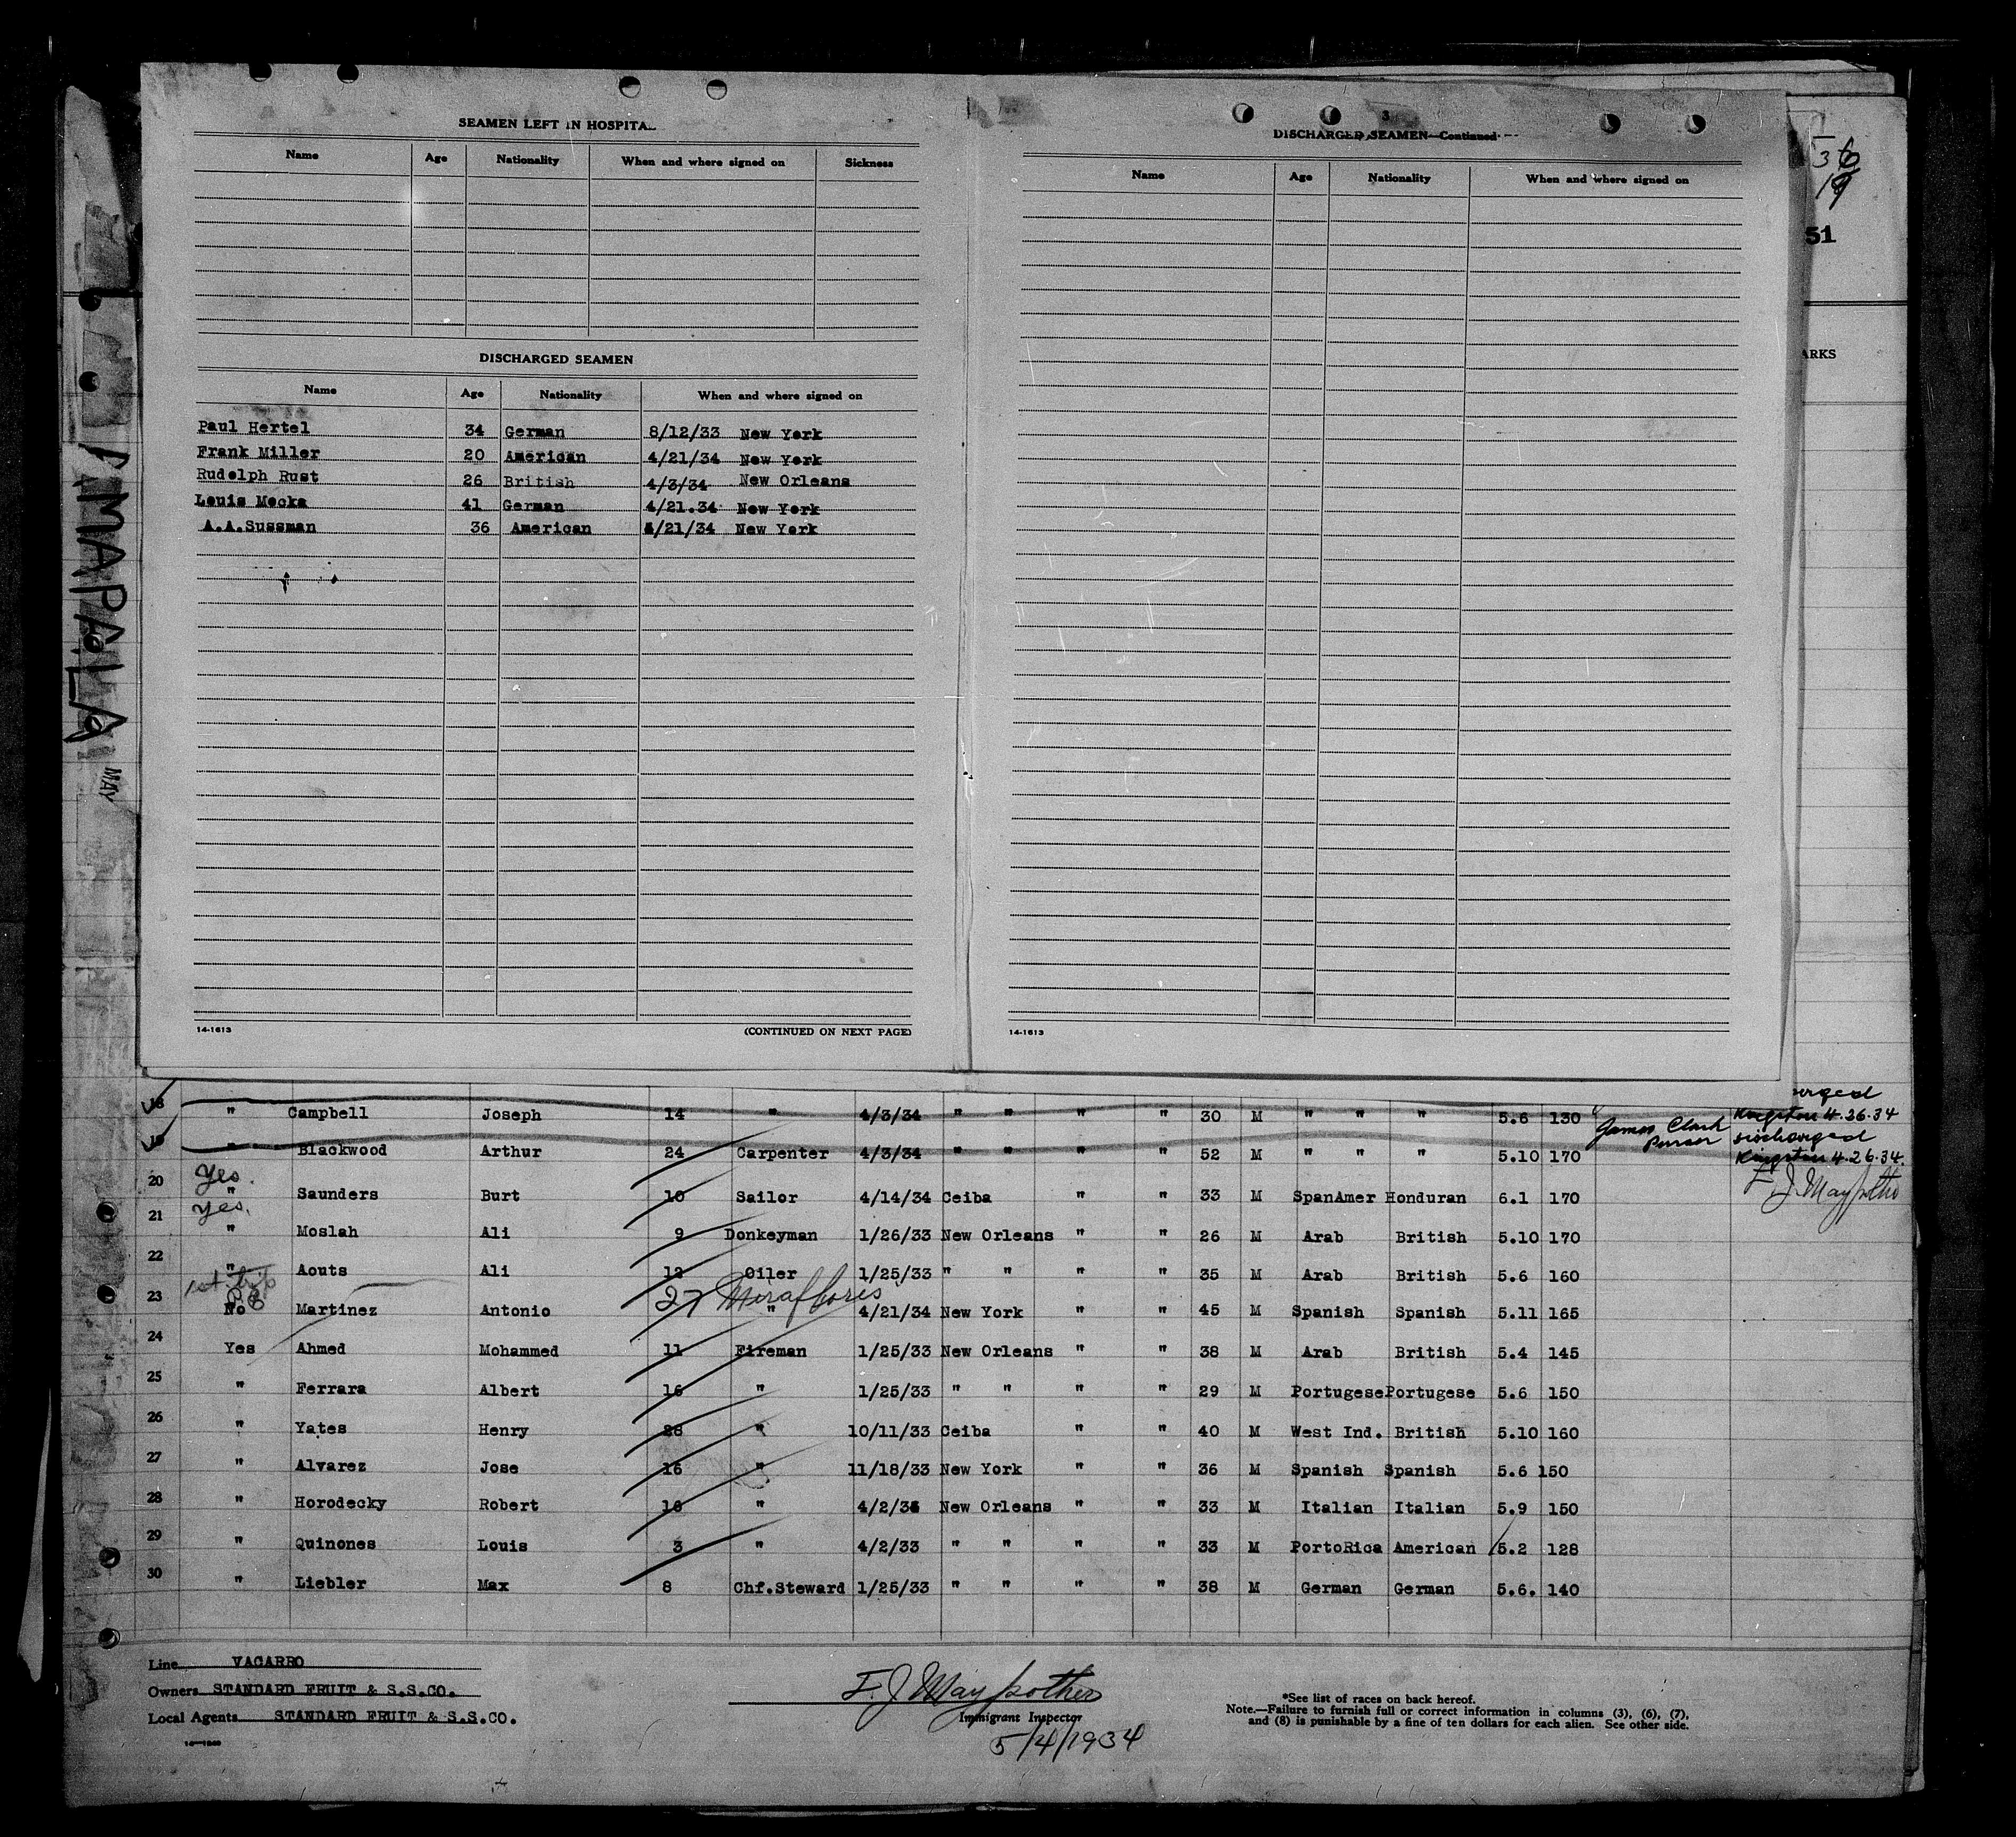 SEAMEN LEFT IN HOSPITAL
Name Age Nationality When and where signed on Sickness
DISCHARGED SEAMEN
Name Age Nationality When and where signed on
Paul Hertel 34 German 8/12/33 New York
Frank Miller 20 American 4/21/34 New York
Rudolph Rust 26 British 4/3/34 New Orleans
Louis Mocka 41 German 4/21.34 New York
A.A.Sussman 36 American 4/21/34 New York
14-1613 (CONTINUED ON NEXT PAGE)
3
DISCHARGED SEAMEN—Continued
Name Age Nationality When and where signed on
14-1613
36
19
51
ARKS
AMAPALA
MAY
arged
18 " Campbell Joseph 14 " 4/3/34 " " " " 30 M " " " 5.6 130 Kingston 4.26.34
James Clark
Purser
discharged
19 " Blackwood Arthur 24 Carpenter 4/3/34 " " " " 52 M " " " 5.10 170 Kingston 4.26.34.
F. J. Maypother
Yes.
20 " Saunders Burt 10 Sailor 4/14/34 Ceiba " " 33 M SpanAmer Honduran 6.1 170
Yes.
21 " Moslah Ali 9 Donkeyman 1/26/33 New Orleans " " 26 M Arab British 5.10 170
22 " Aouts Ali 12 Oiler 1/25/33 " " " " 35 M Arab British 5.6 160
1st trip
27 Miraflores
23 No Martinez Antonio " 4/21/34 New York " " 45 M Spanish Spanish 5.11 165
24 Yes Ahmed Mohammed 11 Fireman 1/25/33 New Orleans " " 38 M Arab British 5.4 145
25 " Ferrara Albert 16 " 1/25/33 " " " " 29 M Portugese Portugese 5.6 150
26 " Yates Henry 28 " 10/11/33 Ceiba " " 40 M West Ind. British 5.10 160
27 " Alvarez Jose 16 " 11/18/33 New York " " 36 M Spanish Spanish 5.6 150
28 " Horodecky Robert 16 " 4/2/34 New Orleans " " 33 M Italian Italian 5.9 150
29 " Quinones Louis 3 " 4/2/33 " " " " 33 M PortoRica American 5.2 128
30 " Liebler Max 8 Chf.Steward 1/25/33 " " " " 38 M German German 5.6. 140
Line VACARRO
Owners STANDARD FRUIT & S.S.CO.
Local Agents STANDARD FRUIT & S.S.CO.
F. J Maypother
Immigrant Inspector
5/4/1934
*See list of races on back hereof.
Note.—Failure to furnish full or correct information in columns (3), (6), (7),
and (8) is punishable by a fine of ten dollars for each alien. See other side.